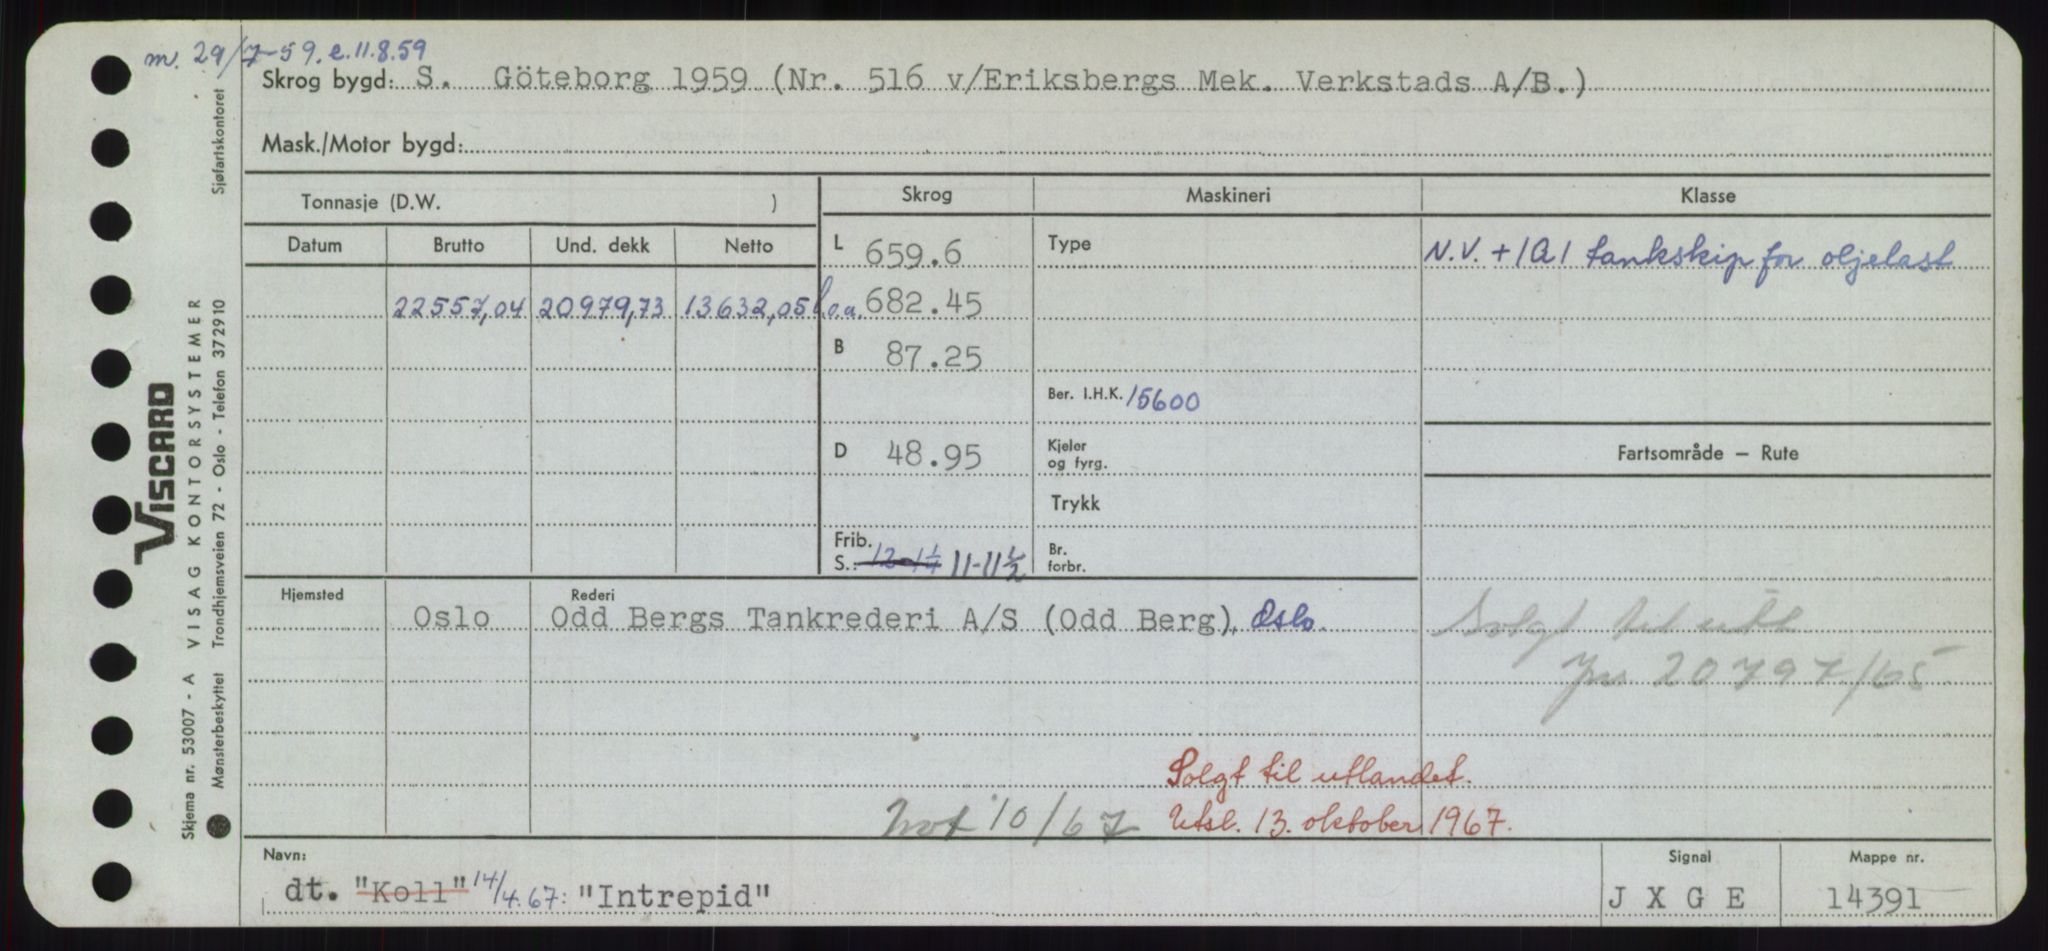 m. 29/7-59. e. 11.8.59
Skrog bygd: S. Göteborg 1959 (Nr. 516 v/Eriksbergs Mek. Verkstads A/B.)
Mask./Motor bygd:
Tonnasje (D.W. )
Skrog
Maskineri
Klasse
Datum
Brutto
Und. dekk
Netto
L 659.6
Type
N.V. +1A1 tankskip for oljelast
22557,04
20979,73
13632,05
l.o.a. 682.45
B 87.25
Ber. I.H.K. 15600
D 48.95
Kjeler
og fyrg.
Fartsområde — Rute
Trykk
Frib.
S.: 12-1 1/4 11-11 1/2
Br.
forbr.
Hjemsted
Rederi
Oslo
Odd Bergs Tankrederi A/S (Odd Berg), Oslo.
Solgt til utl.
20797/65
Solgt til utlandet.
Not 10/67
Utsl. 13. oktober 1967.
Navn:
dt. "Koll" 14/4.67: "Intrepid"
Signal
J X G E
Mappe nr.
14391
VISCARD
VISAG KONTORSYSTEMER
Skjema nr. 53007 - A
Mønsterbeskyttet
Trondhjemsveien 72 - Oslo - Telefon 372910
Sjøfartskontoret